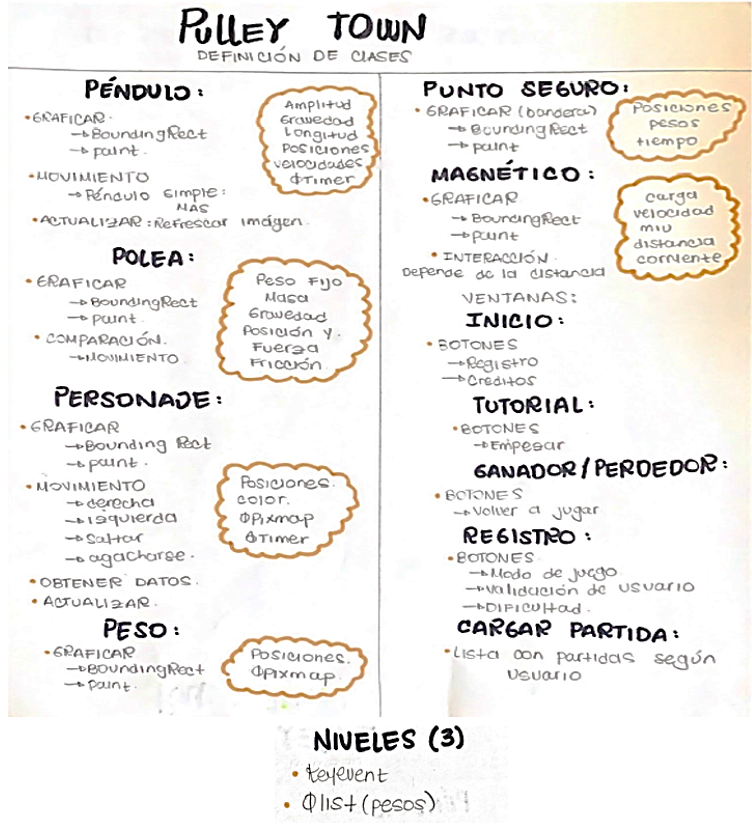 PULLEY TOWN
DEFINICIÓN DE CLASES
PÉNDULO:
•GRAFICAR:
→BoundingRect
→paint.
•MOVIMIENTO
→Péndulo simple:
MAS
•ACTUALIZAR: Refrescar imágen.
Amplitud
Gravedad
Longitud
Posiciones
velocidades
QTimer
POLEA:
•GRAFICAR
→BoundingRect
→paint.
•COMPARACIÓN.
→MOVIMIENTO.
Peso Fijo
Masa
Gravedad
Posición y.
Fuerza
Fricción.
PERSONAJE:
•GRAFICAR
→Bounding Rect
→paint.
•MOVIMIENTO
→derecha
→izquierda
→saltar
→agacharse.
•OBTENER DATOS.
•ACTUALIZAR.
Posiciones.
color.
QPixmap
QTimer
PESO:
•GRAFICAR
→BoundingRect
→paint.
Posiciones.
QPixmap.
PUNTO SEGURO:
•GRAFICAR (bandera)
→BoundingRect
→paint
Posiciones
pesos
tiempo
MAGNÉTICO:
•GRAFICAR
→BoundingRect
→paint
•INTERACCIÓN.
Depende de la distancia
carga
velocidad
miu
distancia
corriente
VENTANAS:
INICIO:
•BOTONES
→Registro
→Creditos
TUTORIAL:
•BOTONES
→Empesar
GANADOR/PERDEDOR:
•BOTONES
→Volver a jugar
REGISTRO:
•BOTONES.
→Modo de juego.
→validación de usuario
→DIFICULTAD.
CARGAR PARTIDA:
•Lista con partidas según
usuario
NIVELES (3)
• keyevent
• Qlist (pesos)